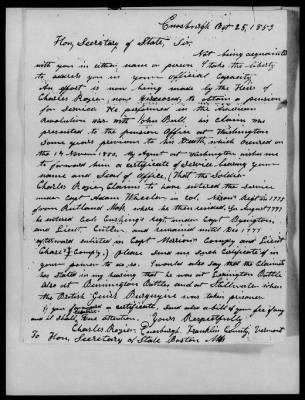 Enosburgh Oct 25, 1853
Hon, Secretary of State, Sir.
Not being acquainted
with you in either name or person I take the liberty
to address you in your official Capacity.
An effort is now being made by the Heirs of
Charles Rozier, now deceased, to obtain a pension
for Service He performed in the American
Revolution war with John Bull. his claim was
presented to the pension Office at Washington
Some years previous to his Death, which occured on
the 14 My Agent at Washington wishes me
to forward him a certificate of service bearing your
name and Seal of Office, (That the Soldier
Charles Rozier, Claims to have entered the service
under Capt Adam Wheeler in Col. Nixons Regt in 1775
from Rutland Mass where he then resided. In August 1777
he entered Cushings regt. under Capt Boynton
and Lieut. Cutler. and remained until Dec 1777
afterward enlisted in Capt Marions Compy and Lieut
Chase Compy.) please send me such Certificate if in
your power to do so. I would also say that the Claimant
has stated in my hearing that he was at Lexington Battle
also at Bennington Battles and at Stillwater when
the British Genrl Burgoyne was taken prisoner.
if you a certificate, send also a bill of your fee if any
and it shall have attention. Yours Respectfully
Charles Rozier, Enosburgh, Franklin County, Vermont
To Hon, Secretary of State Boston Mass